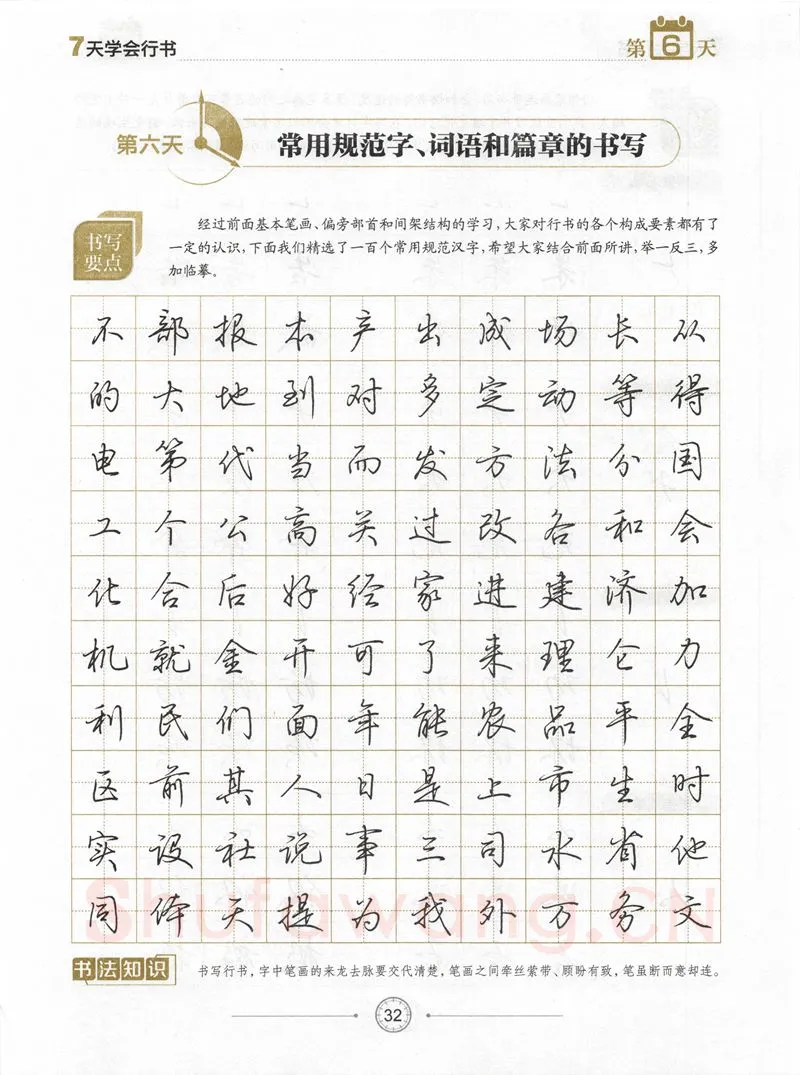 7天学会行书
第6天
第六天 常用规范字、词语和篇章的书写
书写要点
经过前面基本笔画、偏旁部首和间架结构的学习，大家对行书的各个构成要素都有了
一定的认识，下面我们精选了一百个常用规范汉字，希望大家结合前面所讲，举一反三，多
加临摹。
不部报本产出成场长从
的大地到对多定动等得
电第代当而发方法分国
工个公高关过改各和会
化合后好经家进建济加
机就金开可了来理仑力
利民们面年能农品平全
区前其人日是上市生时
实设社说事三司水省他
同体天提为我外万务文
Shufawang.CN
书法知识 书写行书，字中笔画的来龙去脉要交代清楚，笔画之间牵丝萦带、顾盼有致，笔虽断而意却连。
32